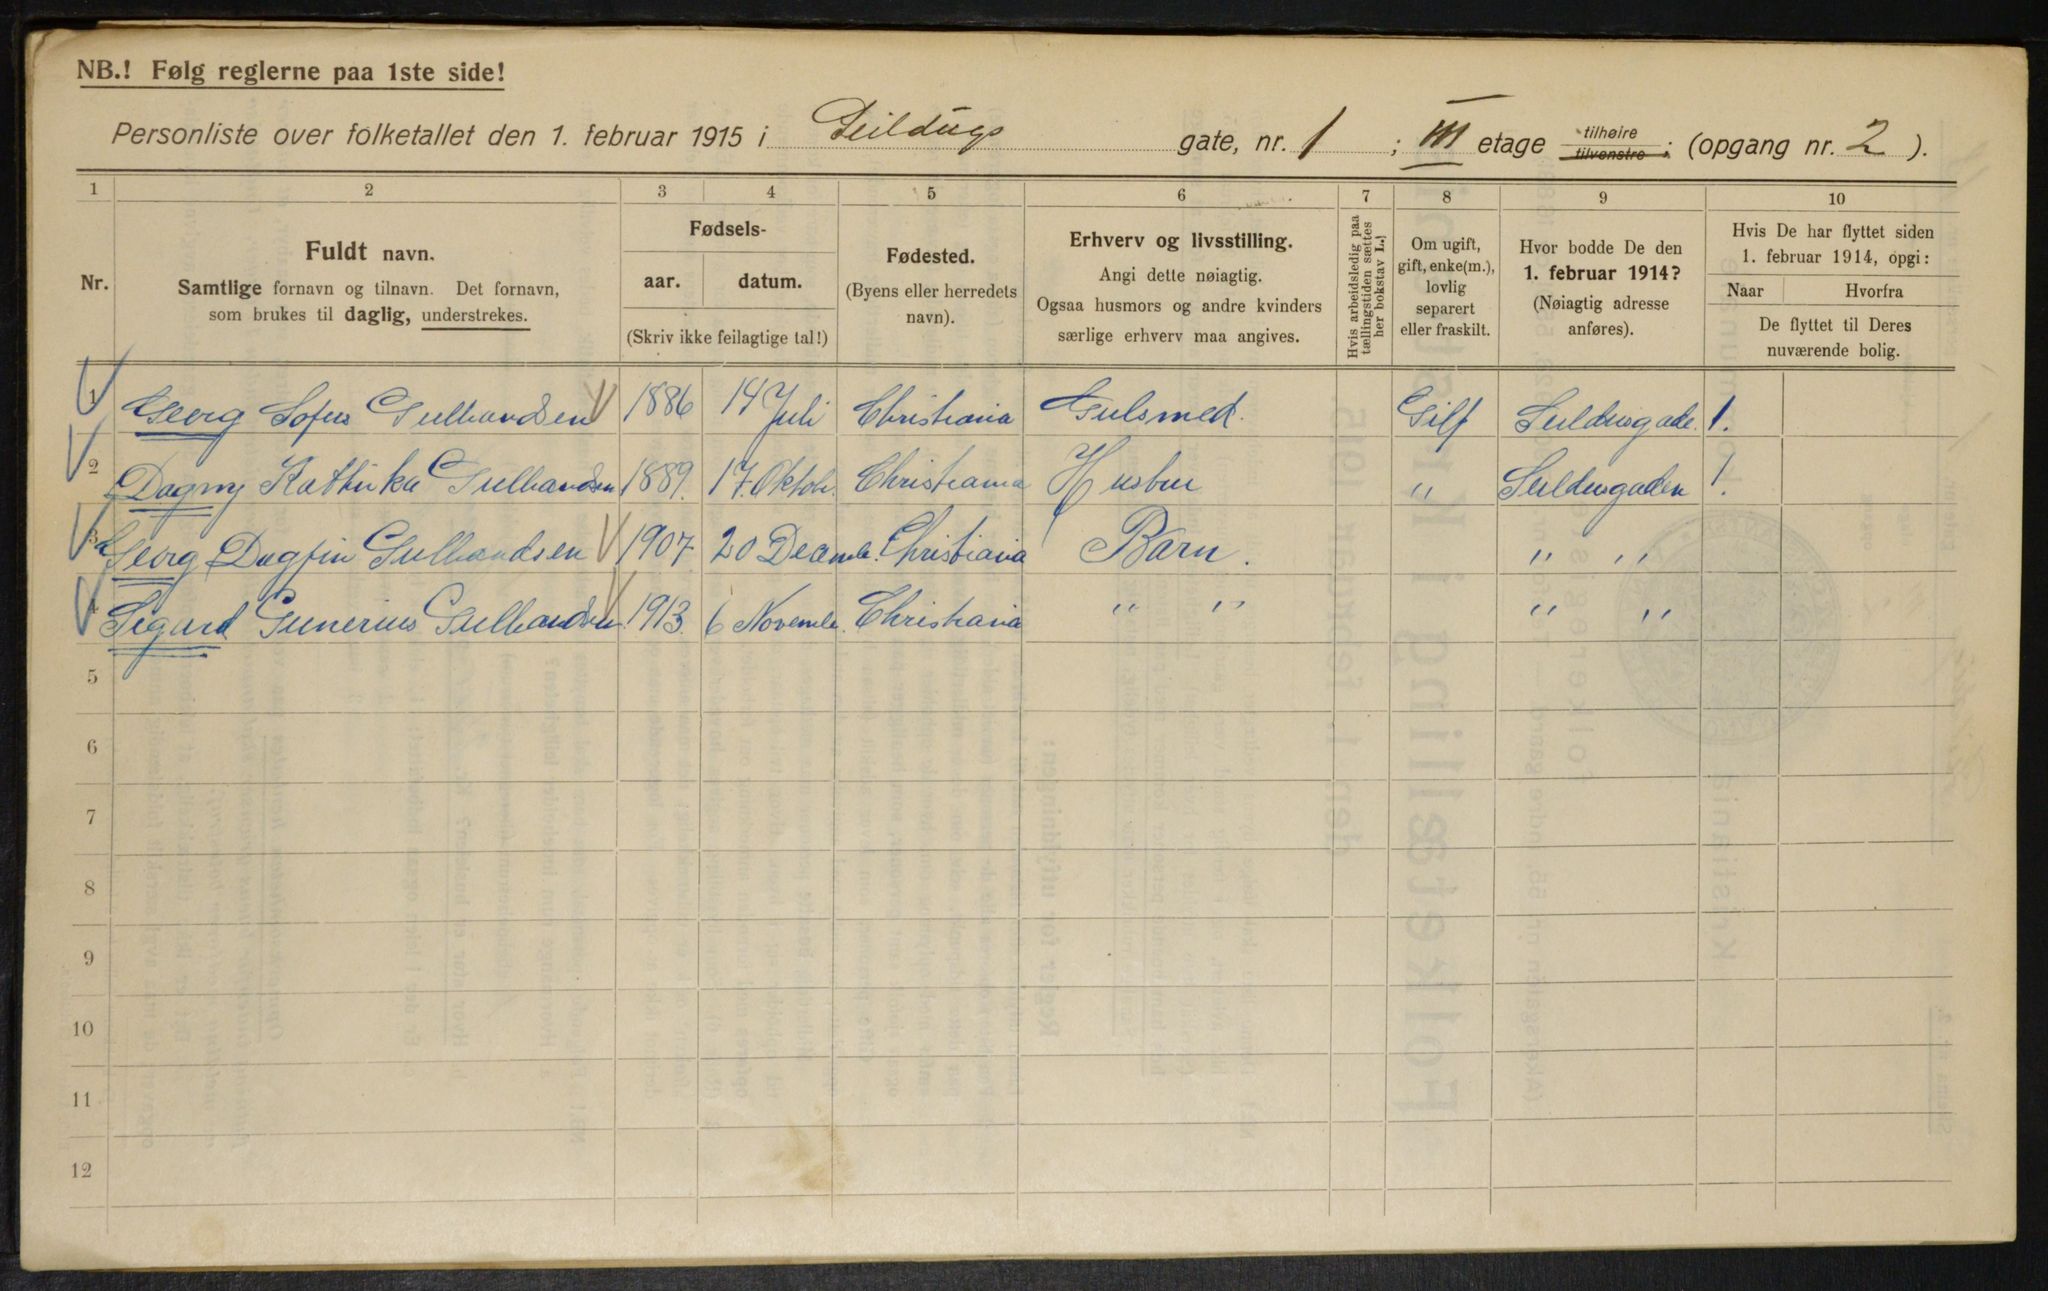 NB.! Følg reglerne paa 1ste side!
Personliste over folketallet den 1. februar 1915 i Seildugs gate, nr. 1 ; III etage tilhøire tilvenstre; (opgang nr. 2 ).
1 2 3 4 5 6 7 8 9 10
Nr.
Fuldt navn.
Samtlige fornavn og tilnavn. Det fornavn,
som brukes til daglig, understrekes.
Fødsels-
aar. datum.
(Skriv ikke feilagtige tal!)
Fødested.
(Byens eller herredets
navn).
Erhverv og livsstilling.
Angi dette nøiagtig.
Ogsaa husmors og andre kvinders
særlige erhverv maa angives.
Hvis arbeidsledig paa
tællingstiden sættes
her bokstav L.
Om ugift,
gift, enke(m.),
lovlig
separert
eller fraskilt.
Hvor bodde De den
1. februar 1914?
(Nøiagtig adresse
anføres).
Hvis De har flyttet siden
1. februar 1914, opgi:
Naar Hvorfra
De flyttet til Deres
nuværende bolig.
1 Georg Sofus Gulbrandsen 1886 14 Juli Christiania Gulsmed. Gift Seildugsgade. 1.
2 Dagny Kathinka Gulbrandsen 1889. 17 Oktob. Christiania Husbur " Seildusgaden 1.
3 Georg Dagfin Gulbrandsen 1907. 20 Decemb. Christiania Barn. " "
4 Sigurd Gunerius Gulbrandsen 1913. 6 Novemb. Christiania " " " "
5
6
7
8
9
10
11
12